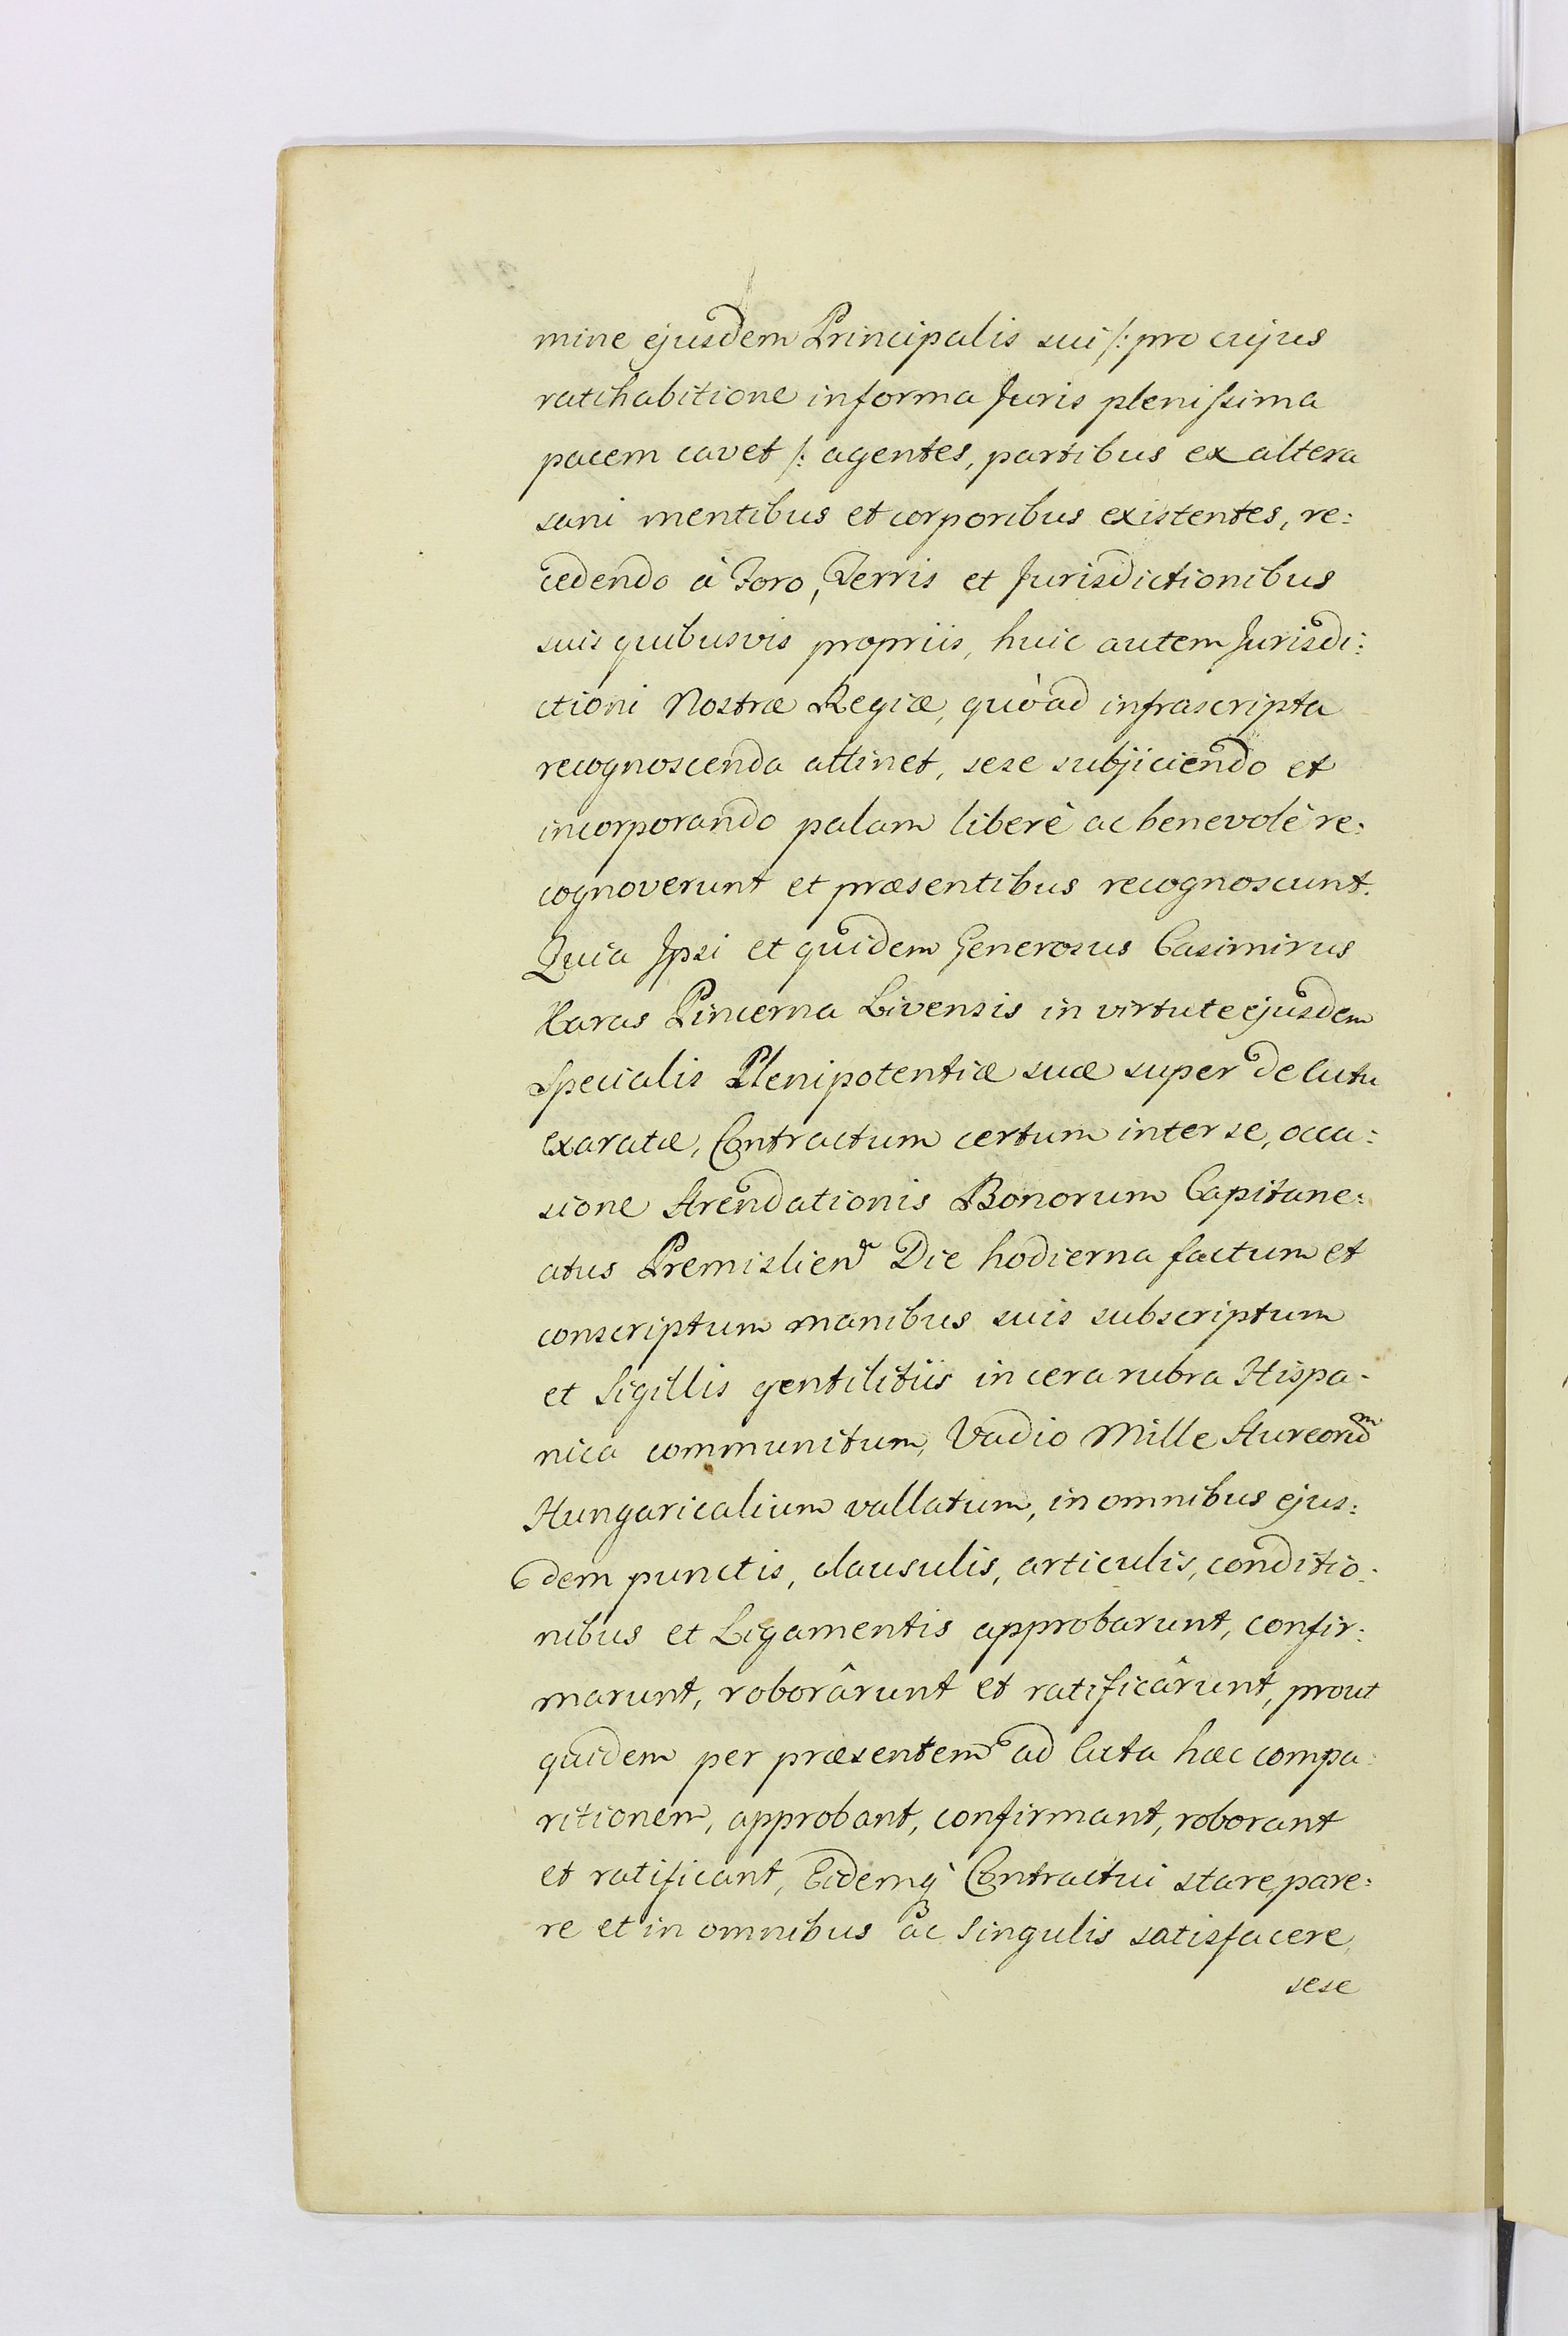 mine ejusdem Principalis sui /: pro cujus
ratihabitione in forma Juris plenissima
pacem cavet /: agentes, partibus ex altera
sani mentibus et corporibus existentes, re:
cedendo à Foro, Terris et Jurisdictionibus
suis quibusvis propriis, huic autem Jurisdi:
ctioni Nostræ Regiæ, quòad infrascripta
recognoscenda attinet, sese subjiciendo et
incorporando palam liberè ac benevolè re:
cognoverunt et præsentibus recognoscunt.
Quia Ipsi et quidem Generosus Casimirus
Karas Pincerna Livensis in virtute ejusdem
Specialis Plenipotentiæ suæ super de actu
exaratæ, Contractum certum inter se, occa:
sione Arendationis Bonorum Capitane:
atus Premislien Die hodierna factum et
conscriptum manibus suis subscriptum
et Sigillis gentilitiis in cera rubra Hispa-
nica communitum, Vadio Mille Aureorum
Hungaricalium vallatum, in omnibus ejus:
dem punctis, clausulis, articulis, conditio:
nibus et Ligamentis approbarunt, confir:
marunt, roborârunt et ratificârunt, prout
quidem per præsentem ad Acta hæc compa:
ritionem, approbant, confirmant, roborant
et ratificant, Eidemq̀ Contractui stare, pare:
re et in omnibus ac Singulis satisfacere,
sese